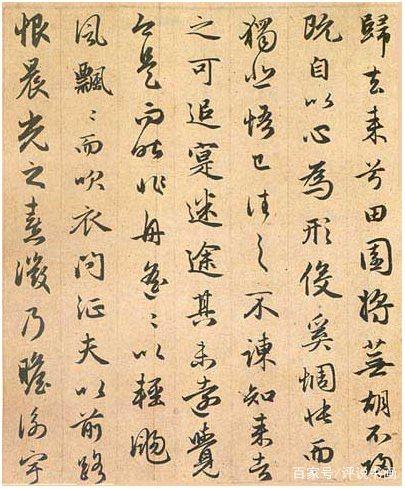 歸去来兮田園將蕪胡不歸
既自以心為形役奚惆悵而
獨悲悟已往之不諫知来者
之可追寔迷途其未遠覺
今是而昨非舟遥〻以輕颺
風飄〻而吹衣問征夫以前路
恨晨光之熹微乃瞻衡宇
百家号/评说书画